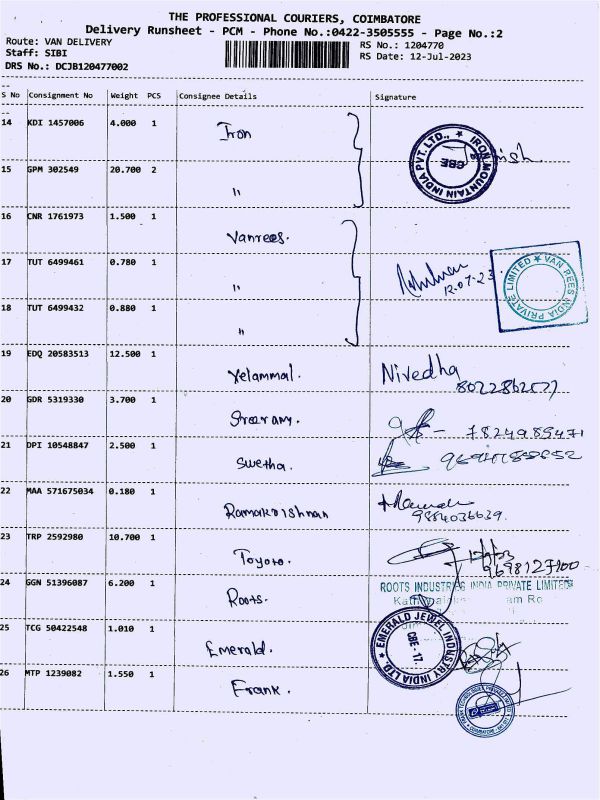 THE PROFESSIONAL COURIERS, COIMBATORE
Delivery Runsheet - PCM - Phone No.:0422-3505555 - Page No.:2
Route: VAN DELIVERY
RS No.: 1204770
Staff: SIBI
RS Date: 12-Jul-2023
DRS No.: DCJB120477002
S No Consignment No Weight PCS Consignee Details Signature
14 KDI 1457006 4.000 1 Iron
IRON MOUNTAIN INDIA PVT. LTD., CBE
15 GPM 302549 20.700 2 "
16 CNR 1761973 1.500 1 Vanrees.
17 TUT 6499461 0.780 1 " 12.07.23
VAN REES INDIA PRIVATE LIMITED
18 TUT 6499432 0.880 1 "
19 EDQ 20583513 12.500 1 Yelammal. Nivedha
20 GDR 5319330 3.700 1 7824985471
21 DPI 10548847 2.500 1 Swetha.
22 MAA 571675034 0.180 1 Ramakrishnan
9884036639.
23 TRP 2592980 10.700 1 Toyoto.
9698127100
24 GGN 51396087 6.200 1 Roots. ROOTS INDUSTRIES INDIA PRIVATE LIMITED
25 TCG 50422548 1.010 1 Emerald.
EMERALD JEWEL INDUSTRY INDIA LTD. CBE - 17.
26 MTP 1239082 1.550 1 Frank.